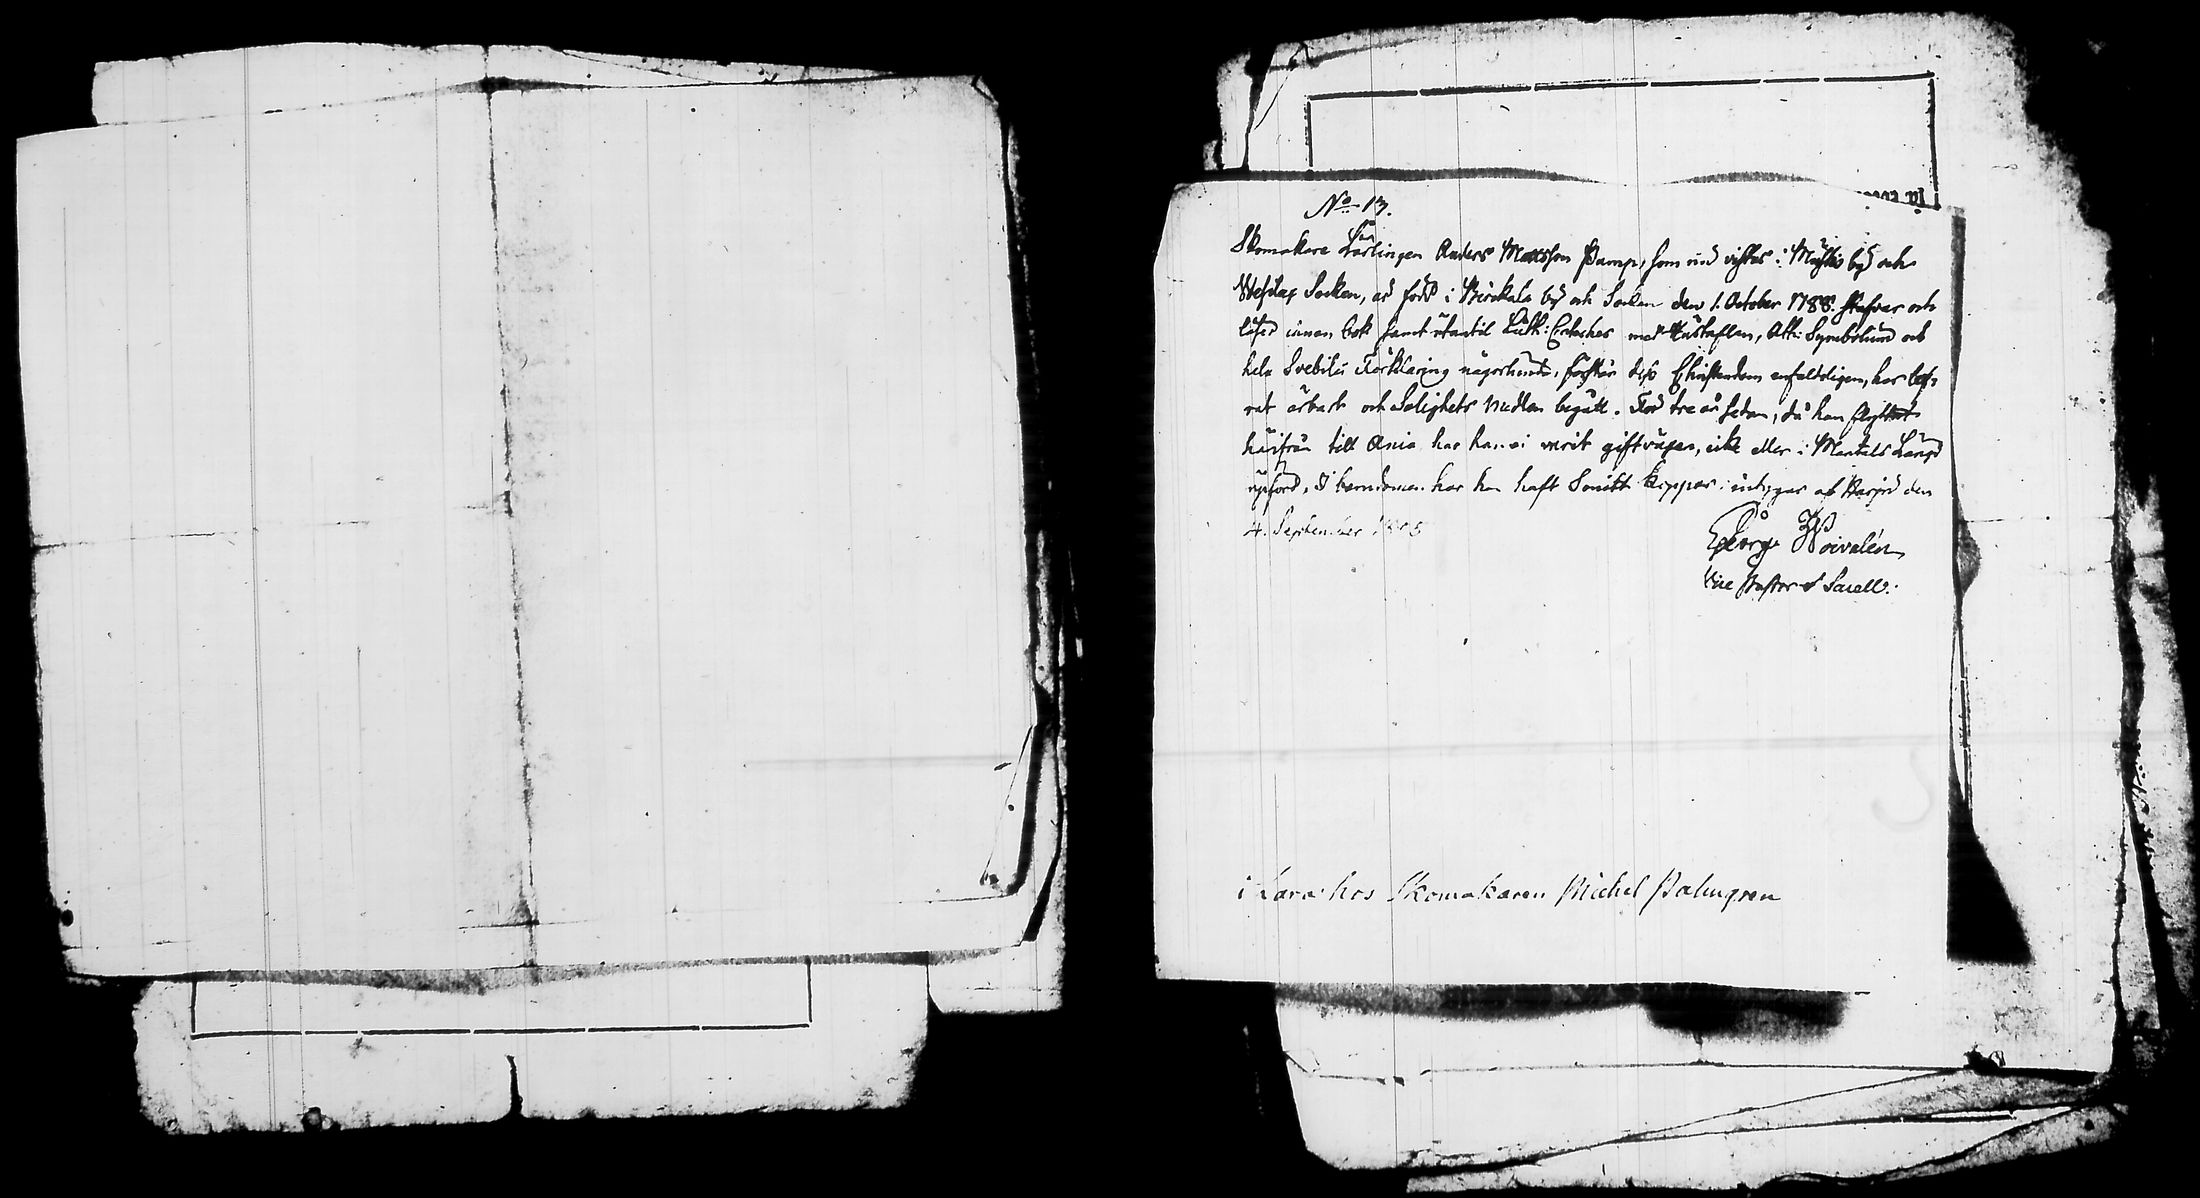 No 13.
Skomakare Lärlingen Anders Matsson Pamp, som nu vistas i by och
Wesilax Socken, är född i Birckala by och Socken den 1. October 1788. stafvar och
läser innan bok samt utantil Luth: Cateches med Hustaflan, Ath: Symbolum och
hela Svebilii Förklaring någorlunda, förstår dess Christendom enfaldeligen, har lef-
vat ärbart och Salighets Medlen begått. För tre år sedan, då han flyttat
härifrån till Ania har han ei varit giftvuxen, icke eller i Mantals Längd
upförd, I barndomen har han haft Smitt koppor; intygar af Harju den
4. September 1805
Georg Hoivalén
Vice Pastor et Sacell:
i Lära hos Skomakaren Michel Palmgren